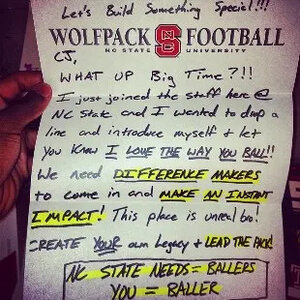 Let's Build Something Special!!!
WOLFPACK S FOOTBALL
NC STATE UNIVERSITY
CJ,
WHAT UP Big Time?!!
I just joined the staff here @
NC State and I wanted to drop a
line and introduce myself + let
You Know I LOVE THE WAY YOU BALL!!
We need DIFFERENCE MAKERS
to come in and MAKE AN INSTANT
IMPACT! This place is unreal bro!
CREATE YOUR own Legacy + LEAD THE PACK!
NC STATE NEEDS = BALLERS
YOU = BALLER